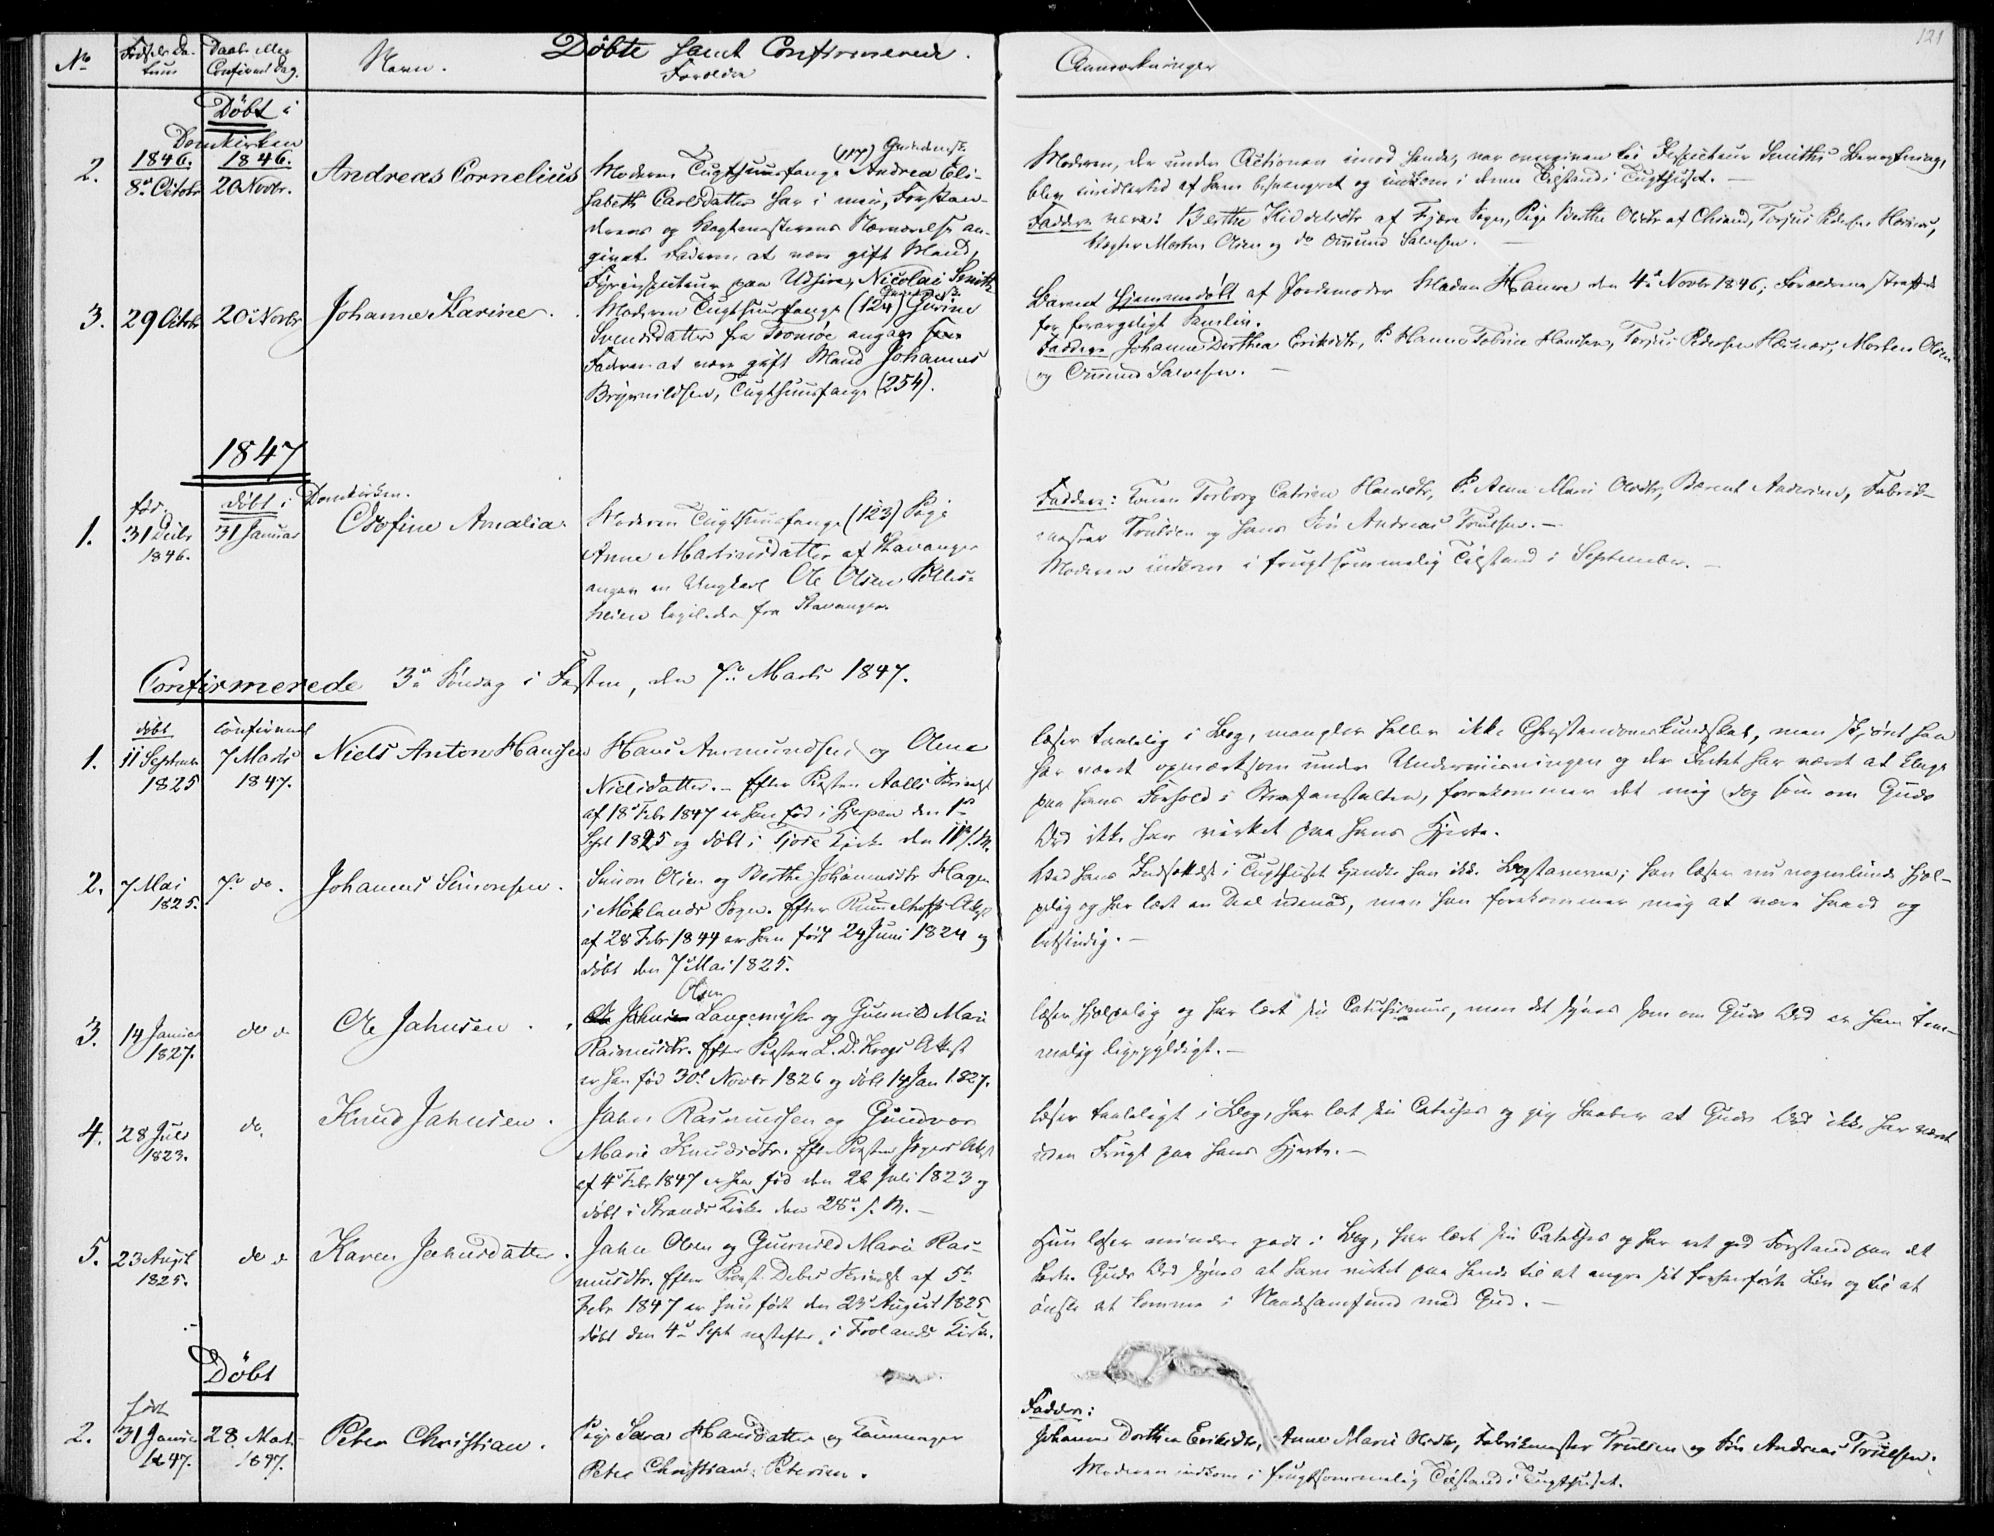 121
Døbte samt Confirmerede.
No Fødsels Datum Daabs eller Confirmat. Dag. Navn. Forældre Anmærkninger
Døbt i
Domkirken
2. 1846. 8de Octobr 1846. 20 Novbr. Andreas Cornelius
Moderen Tugthuusfange (117) Andrea Eli-
sabeth Carlsdatter har i min, Forstan-
derens og Vagtmesterens Nærværelse an-
givet Faderen at være gift Mand,
Fyrinspecteur paa Udsire, Nicolai Smith
Moderen, der under Actionen imod hende, var overgiven til Inspecteur Smiths Bevogtning,
blev imidlertid af ham besvangret og indkom i denne Tilstand i Tugthuset. —
Faddere vare: Berthe af Fjære Sogn, Pige Berthe Olsdtr af Chrsand, Torjus Pedersen
Morten Olsen og do Omund Salvesen. —
3. 29 Octobr 20de Novbr Johanne Karine.
Moderen Tugthuusfange (124) Gurine
Svendsdatter fra Tromøe angav
Faderen at være gift Mand Johannes
Brynildsen, Tugthuusfange (254).
Barnet hjemmedøbt af Jordemoder Madam Hanve den 4de Novbr 1846; Forældrene straffede
for forargeligt Samliv.
Faddere Johanne Dorthea Eriksdtr, P. Hanne Tobine Hansen, Torjus Pedersen, Morten Olsen
og Omund Salvesen. —
1847
Døbt i Domkirken.
1. før. 31 Decbr 1846. 31 Januar Odofine Amalia.
Moderen Tugthuusfange (123) Pige
Anne Martinsdatter af Stavanger
angav en Ungkarl Ole Olsen
fra Stavanger.
Faddere: Konen Torborg Catrine, P. Anne Marie Olsdtr, Bærent Andersen, Fabrik-
mester Truelsen og hans Søn Andreas Truelsen. —
Moderen indkom i frugtsommelig Tilstand i September. —
Confirmerede 3die Søndag i Fasten, den 7de Marts 1847.
1. døbt 11 Septembr 1825 confirmeret 7 Marts 1847. Niels Anton Hansen
Hans Amundsen og Olene
Nielsdatter. — Efter Præsten Aalls
af 18de Febr 1847 er han fød i Gjerpen den 1ste
Sept 1825 og døbt i Kirke den 11te s. M.
læser taalelig i Bog, mangler heller ikke Christendomskundskab, men skjønt han
har været opmærksom under Underviisningen og der Intet har været at klage
paa hans Forhold i Strafanstalten, forekommer det mig dog som om Guds
Ord ikke har virket paa hans Hjerte.
2. 7 Mai 1825. 7de do. Johannes Simonsen.
Simon Olsen og Berthe Johannesdtr Hagen
i Moklands Sogn. Efter Rummelhoffs Attest
af 28 Febr 1844 er han født 24 Juni 1824 og
døbt den 7de Mai 1825.
Ved hans Indsættelse i Tugthuset kjendte han ikke Bogstaverne; han læser nu nogenlunde hjæl-
pelig og har lært en Deel udenad, men han forekommer mig at være haard og
letsindig. —
3. 14 Januar 1827. do Ole Jahnsen.
Jahn Olsen Langemyhr og Gunnild Marie
Rasmusdtr. Efter Præsten L. D. Krogs Attest
er han fød 30te Novbr 1826 og døbt 14 Jan 1827.
læser hjælpelig og har lært sin Catechismus, men det synes som om Guds Ord er ham tem-
melig ligegyldigt. —
4. 28 Juli 1823. do. Knud Jahnsen.
Jahn Rasmussen og Gundvor
Marie Knudsdtr. Efter Præsten Attest
af 4de Febr 1847 er han fød den 26 Juli 1823 og
døbt i Strands Kirke den 28de s. M. —
læser taaleligt i Bog, har lært sin Cateches og jeg haaber at Guds Ord ikke har været
uden Frugt paa hans Hjerte. —
5. 23 August 1825. do Karen Jahnsdatter.
Jahn Olsen og Gunnild Marie Ras-
musdtr. Efter Provst Debes af 5te
Febr 1847 er hun født den 23de August 1825
døbt den 4de Sept næstefter i Frolands Kirke.
Hun læser mindre godt i Bog, har lært sin Cateches og har ret god Forstand paa det
lærte. Guds Ord synes at have virket paa hende til at angre sit forhenførte Liv og til at
ønske at komme i Naadesamfund med Gud. —
Døbt
2. født 31 Januar 1847. 28 Marts 1847. Peter Christian.
Pige Sara Hansdatter og
Peter Christian Petersen.
Faddere:
Johanne Dorthea Eriksdtr, Anne Marie Olsdtr, Fabrikmester Truelsen og Søn Andreas Truelsen.
Moderen indkom i frugtsommelig Tilstand i Tugthuset.